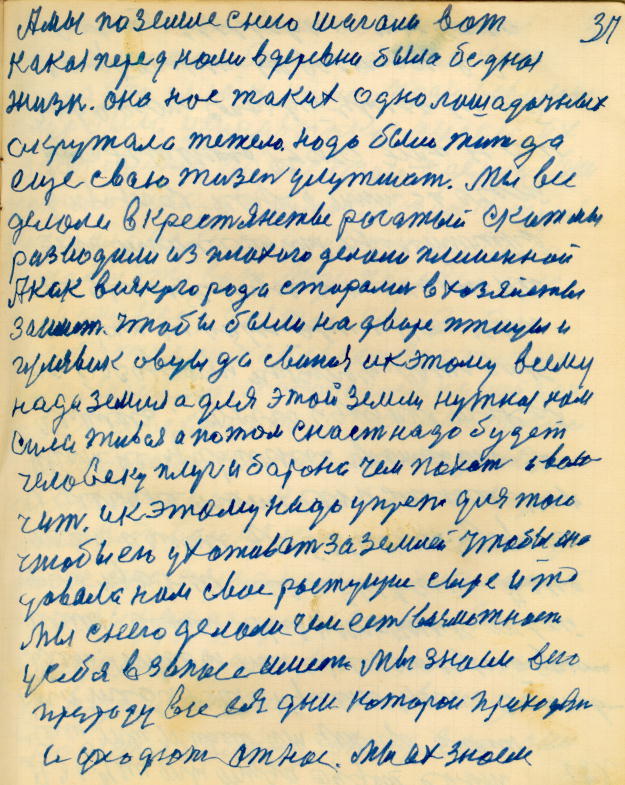 Амы по земле снего шагали вот 37
какая перед нами в деревни была бедная
жизн. она нас таких однолошадочных
окружала тежело. надо было жит да
еще сваю жизен улутшат. Мы все
делоли в крестянстве рогатый скот мы
разводили из плохого делали племенной
Акак всякого рода старалис в хозяйстве
заимет. Чтобы были на дворе птицы и
овцы да свиня ик этому всему
нада земля а для этой земли нужная нам
сила живая а потом снаст надо будет
человеку плуг и барона чем пахат и воло
чит. ик этому надо упреж для того
чтобы ею ухаживат за землей чтобы она
давала нам свае ростущие сырё и то
Мы снего делоли чем ест вазможност
у себя в запасе имет. Мы знаем вею
природу все вея дни которои приходят
и уходют от нас. Мы их знаем